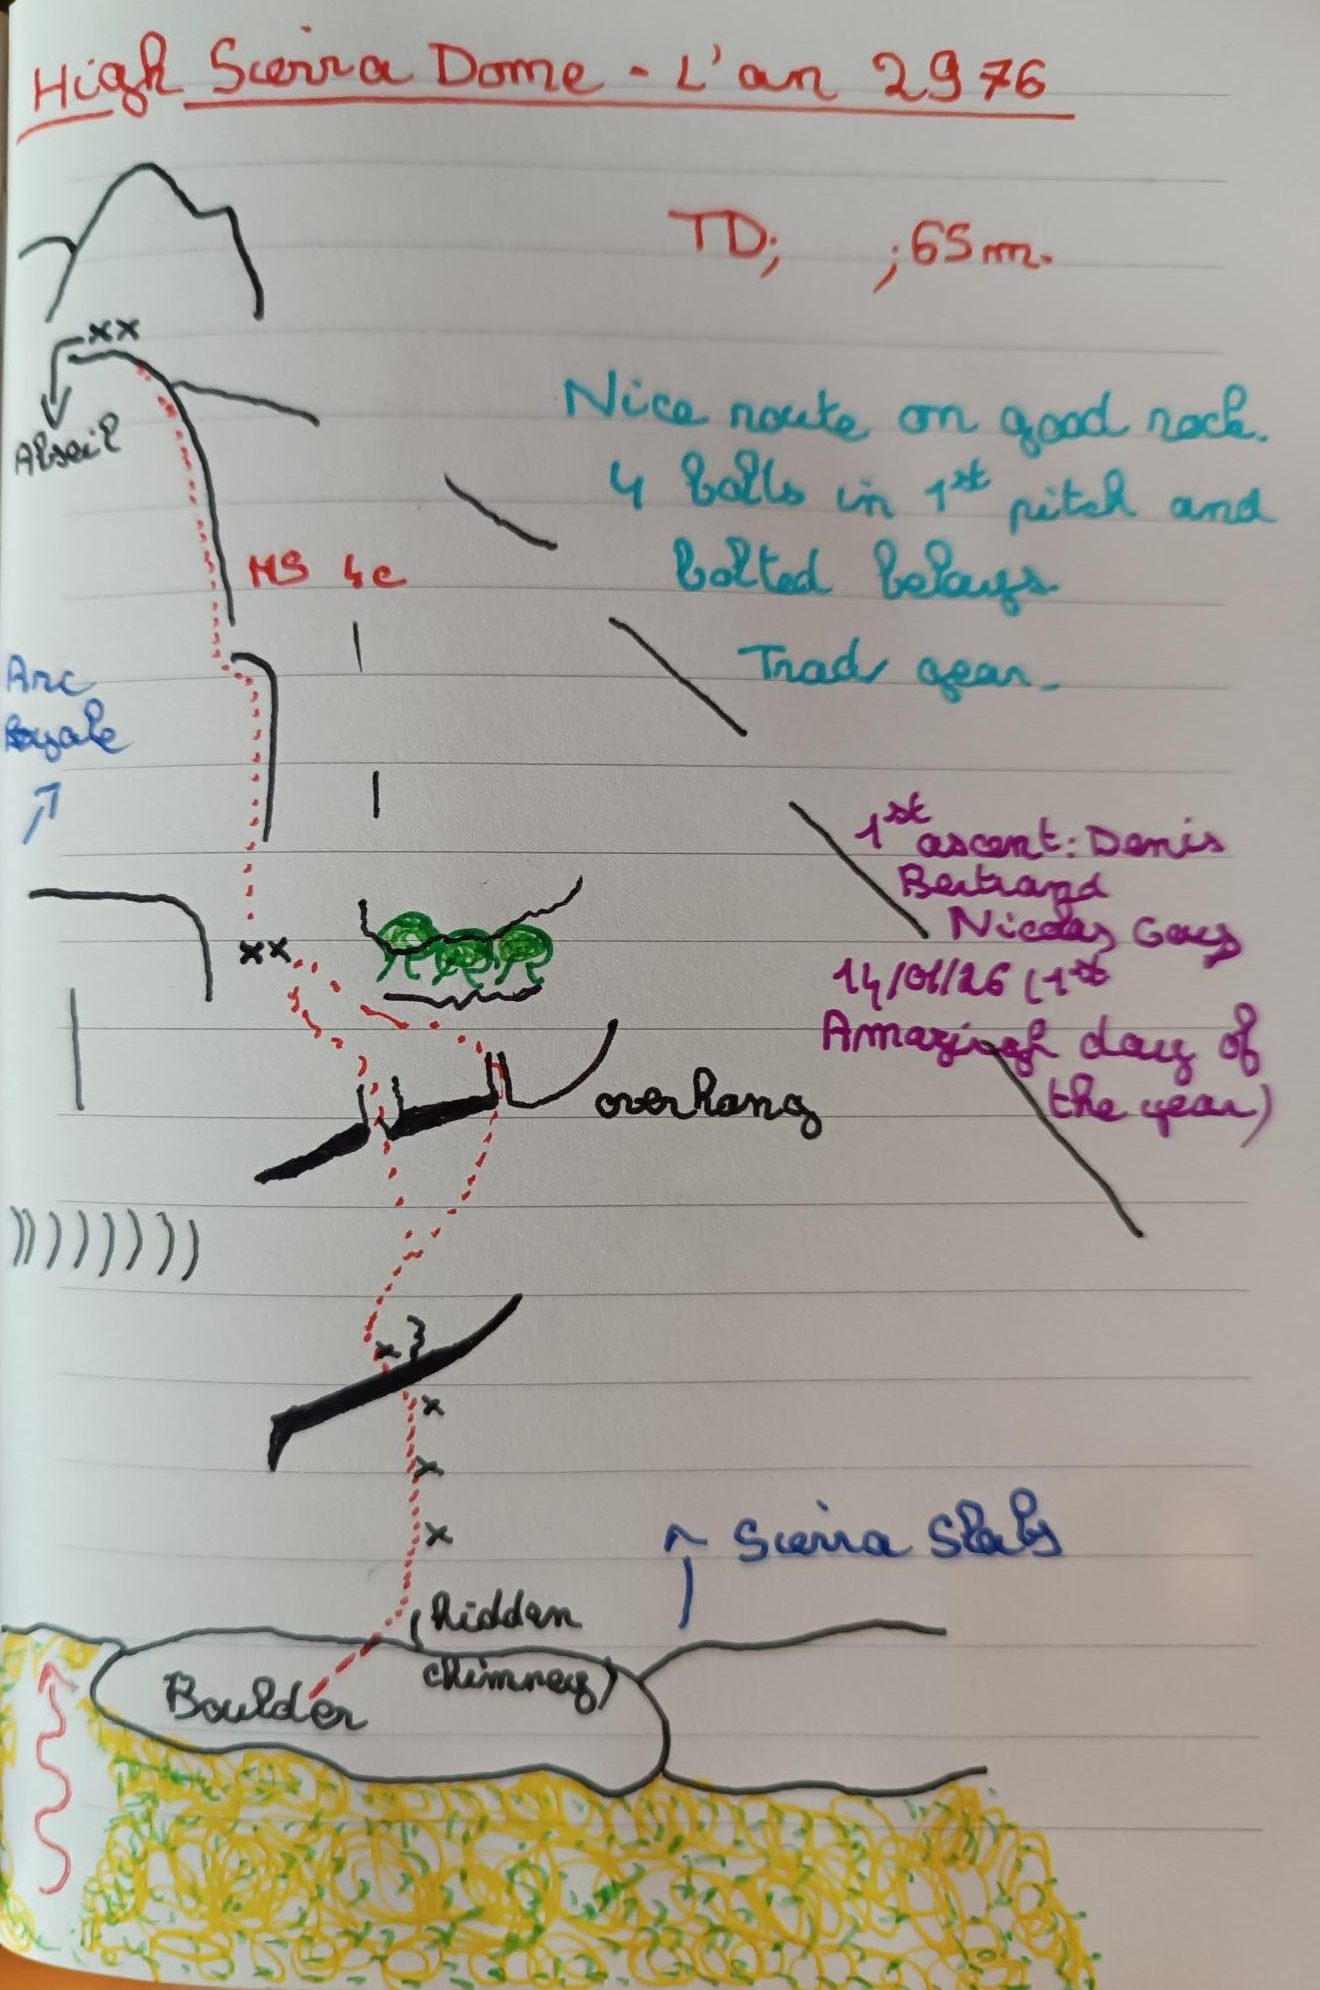 High Sierra Dome - L'an 2976
TD; ; 65m.
xx
Abseil
Nice route on good rock.
4 bolts in 1st pitch and
bolted belays
Trad gear.
HS 4c
Arc
Royale
1st ascent: Denis
Bertrand
Nicolas
14/01/26 (1st
Amazigh day of
the year)
xx
overhang
x
x
x
x
Sierra Slabs
(Hidden
chimney)
Boulder